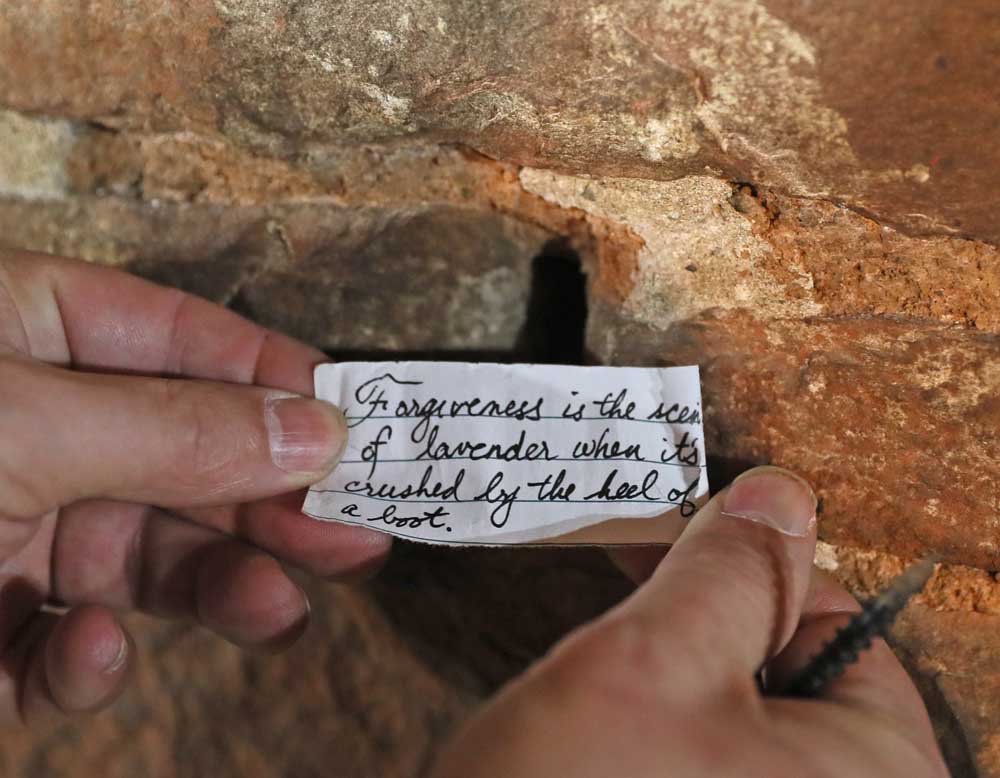 Forgiveness is the scen
of lavender when it's
crushed by the heel of
a boot.